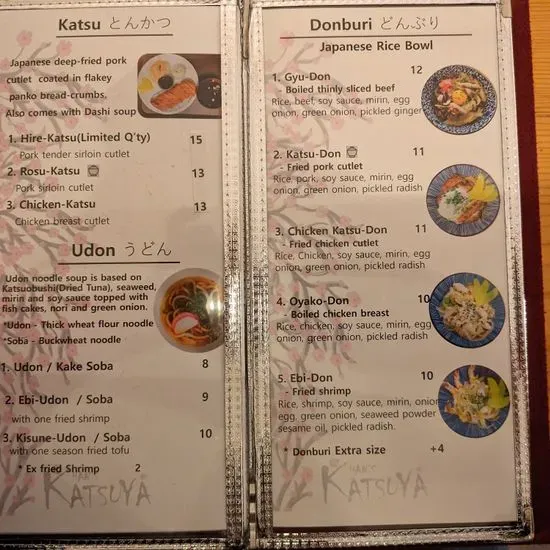 Katsu とんかつ
Japanese deep-fried pork
cutlet coated in flakey
panko bread-crumbs.
Also comes with Dashi soup
1. Hire-Katsu(Limited Q'ty) 15
Pork tender sirloin cutlet
2. Rosu-Katsu 13
Pork sirloin cutlet
3. Chicken-Katsu 13
Chicken breast cutlet
Udon うどん
Udon noodle soup is based on
Katsuobushi(Dried Tuna), seaweed,
mirin and soy sauce topped with
fish cakes, nori and green onion.
*Udon - Thick wheat flour noodle
*Soba - Buckwheat noodle
1. Udon / Kake Soba 8
2. Ebi-Udon / Soba 9
with one fried shrimp
3. Kisune-Udon / Soba 10
with one season fried tofu
* Ex fried Shrimp 2
HAN'S
KATSUYA
Donburi どんぶり
Japanese Rice Bowl
1. Gyu-Don 12
- Boiled thinly sliced beef
Rice, beef, soy sauce, mirin, egg
onion, green onion, pickled ginger
2. Katsu-Don 11
- Fried pork cutlet
Rice, pork, soy sauce, mirin, egg
onion, green onion, pickled radish
3. Chicken Katsu-Don 11
- Fried chicken cutlet
Rice, Chicken, soy sauce, mirin, egg
onion, green onion, pickled radish
4. Oyako-Don 10
- Boiled chicken breast
Rice, chicken, soy sauce, mirin, egg
onion, green onion, pickled radish
5. Ebi-Don 10
- Fried shrimp
Rice, shrimp, soy sauce, mirin, onion
egg, green onion, seaweed powder
sesame oil, pickled radish.
* Donburi Extra size +4
HAN'S
KATSUYA